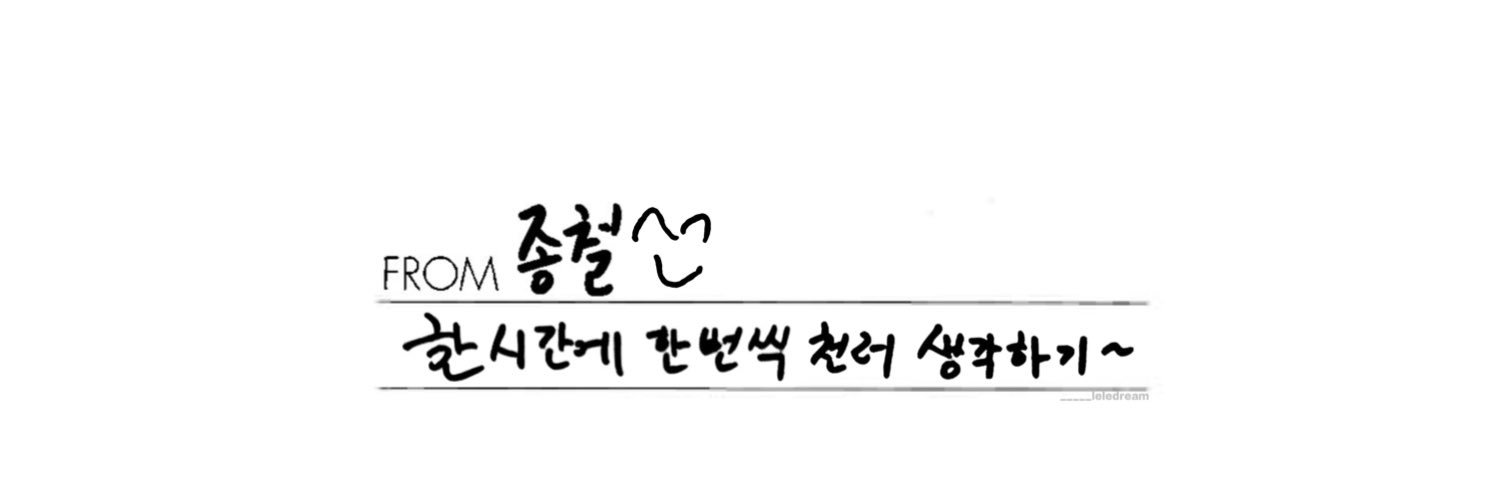 FROM 종철
한시간에 한번씩 천러 생각하기~
_____leledream